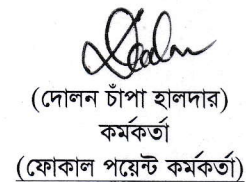 (দোলন চাঁপা হালদার)
কর্মকর্তা
(ফোকাল পয়েন্ট কর্মকর্তা)